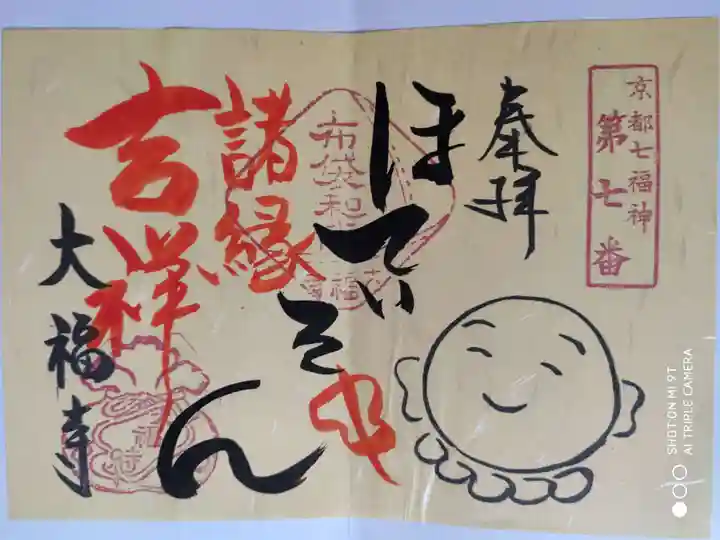 京都七福神
第七番
奉拝
ほてい
そん
布袋和
福
諸縁
吉祥
大福寺
SHOT ON MI 9T
AI TRIPLE CAMERA